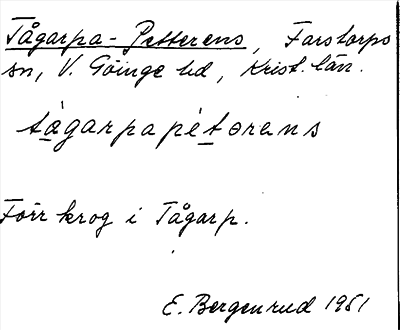 Tågarpa-Petterens, Farstorps
sn, V. Göinge hd, Krist. län.
tågarpapétərens
Förr krog i Tågarp.
E. Bergenrud 1951